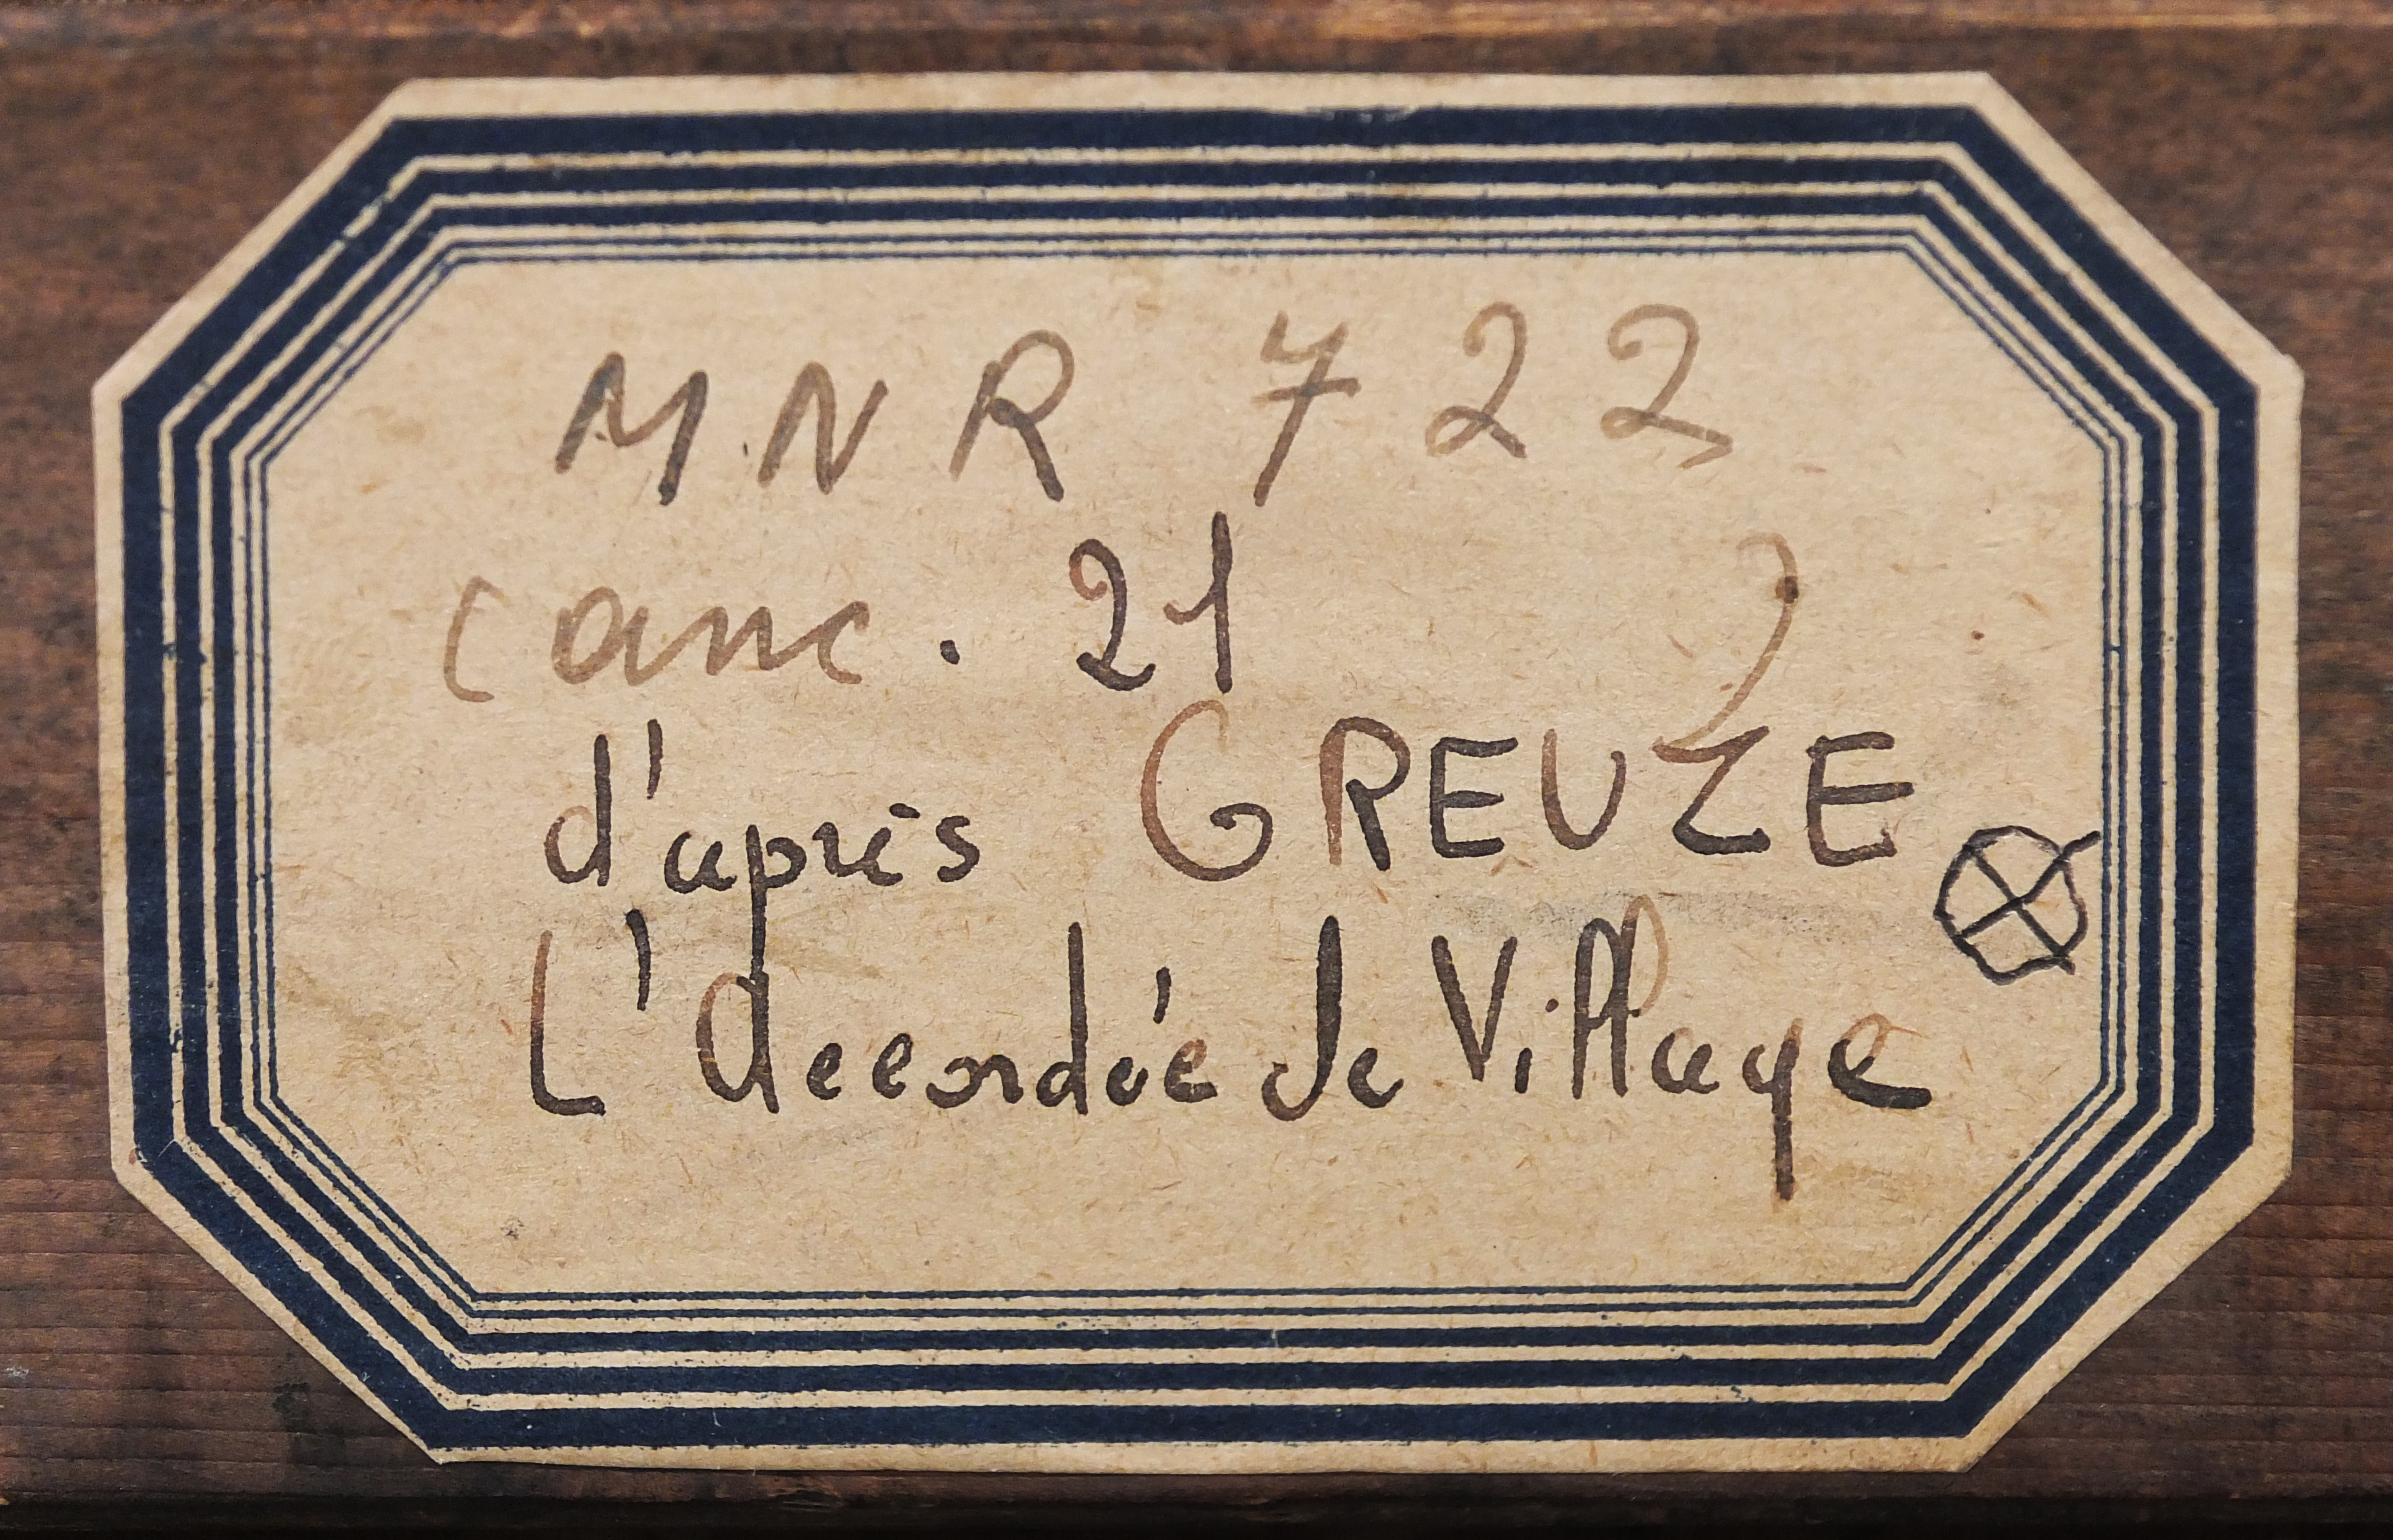 M.N R 722
(anc. 21 )
d'après GREUZE
L'accordée de Village